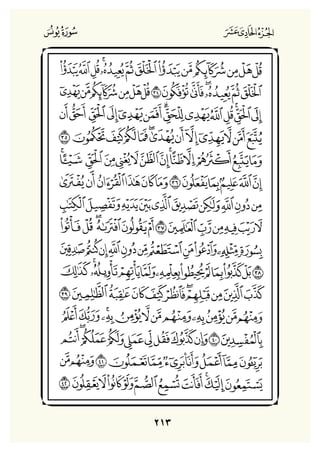 سُورَةُ يُونُسَ الجُزْءُ الحَادِي عَشَرَ
قُلْ هَلْ مِن شُرَكَآئِكُم مَّن يَبْدَؤُاْ ٱلْخَلْقَ ثُمَّ يُعِيدُهُۥۚ قُلِ ٱللَّهُ يَبْدَؤُاْ
ٱلْخَلْقَ ثُمَّ يُعِيدُهُۥۖ فَأَنَّىٰ تُؤْفَكُونَ ٣٤ قُلْ هَلْ مِن شُرَكَآئِكُم مَّن يَهْدِىٓ
إِلَى ٱلْحَقِّۚ قُلِ ٱللَّهُ يَهْدِى لِلْحَقِّۗ أَفَمَن يَهْدِىٓ إِلَى ٱلْحَقِّ أَحَقُّ أَن
يُتَّبَعَ أَمَّن لَّا يَهِدِّىٓ إِلَّآ أَن يُهْدَىٰۖ فَمَا لَكُمْ كَيْفَ تَحْكُمُونَ ٣٥
وَمَا يَتَّبِعُ أَكْثَرُهُمْ إِلَّا ظَنًّاۚ إِنَّ ٱلظَّنَّ لَا يُغْنِى مِنَ ٱلْحَقِّ شَيْـًٔاۚ
إِنَّ ٱللَّهَ عَلِيمٌۢ بِمَا يَفْعَلُونَ ٣٦ وَمَا كَانَ هَٰذَا ٱلْقُرْءَانُ أَن يُفْتَرَىٰ
مِن دُونِ ٱللَّهِ وَلَٰكِن تَصْدِيقَ ٱلَّذِى بَيْنَ يَدَيْهِ وَتَفْصِيلَ ٱلْكِتَٰبِ
لَا رَيْبَ فِيهِ مِن رَّبِّ ٱلْعَٰلَمِينَ ٣٧ أَمْ يَقُولُونَ ٱفْتَرَىٰهُۖ قُلْ فَأْتُواْ
بِسُورَةٍ مِّثْلِهِۦ وَٱدْعُواْ مَنِ ٱسْتَطَعْتُم مِّن دُونِ ٱللَّهِ إِن كُنتُمْ صَٰدِقِينَ
٣٨ بَلْ كَذَّبُواْ بِمَا لَمْ يُحِيطُواْ بِعِلْمِهِۦ وَلَمَّا يَأْتِهِمْ تَأْوِيلُهُۥۚ كَذَٰلِكَ
كَذَّبَ ٱلَّذِينَ مِن قَبْلِهِمْۖ فَٱنظُرْ كَيْفَ كَانَ عَٰقِبَةُ ٱلظَّٰلِمِينَ ٣٩
وَمِنْهُم مَّن يُؤْمِنُ بِهِۦ وَمِنْهُم مَّن لَّا يُؤْمِنُ بِهِۦۚ وَرَبُّكَ أَعْلَمُ
بِٱلْمُفْسِدِينَ ٤٠ وَإِن كَذَّبُوكَ فَقُل لِّى عَمَلِى وَلَكُمْ عَمَلُكُمْۖ أَنتُم
بَرِيٓـُٔونَ مِمَّآ أَعْمَلُ وَأَنَا۠ بَرِىٓءٌ مِّمَّا تَعْمَلُونَ ٤١ وَمِنْهُم مَّن
يَسْتَمِعُونَ إِلَيْكَۚ أَفَأَنتَ تُسْمِعُ ٱلصُّمَّ وَلَوْ كَانُواْ لَا يَعْقِلُونَ ٤٢
٢١٣